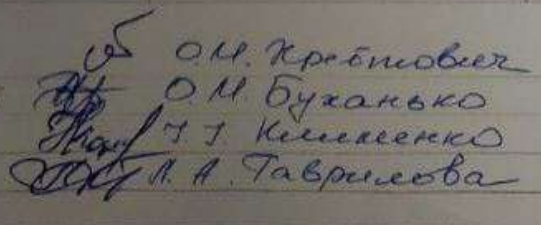 О.М. Хрептович
О.М. Буханько
І. І. Клименко
Л. А. Гаврилова